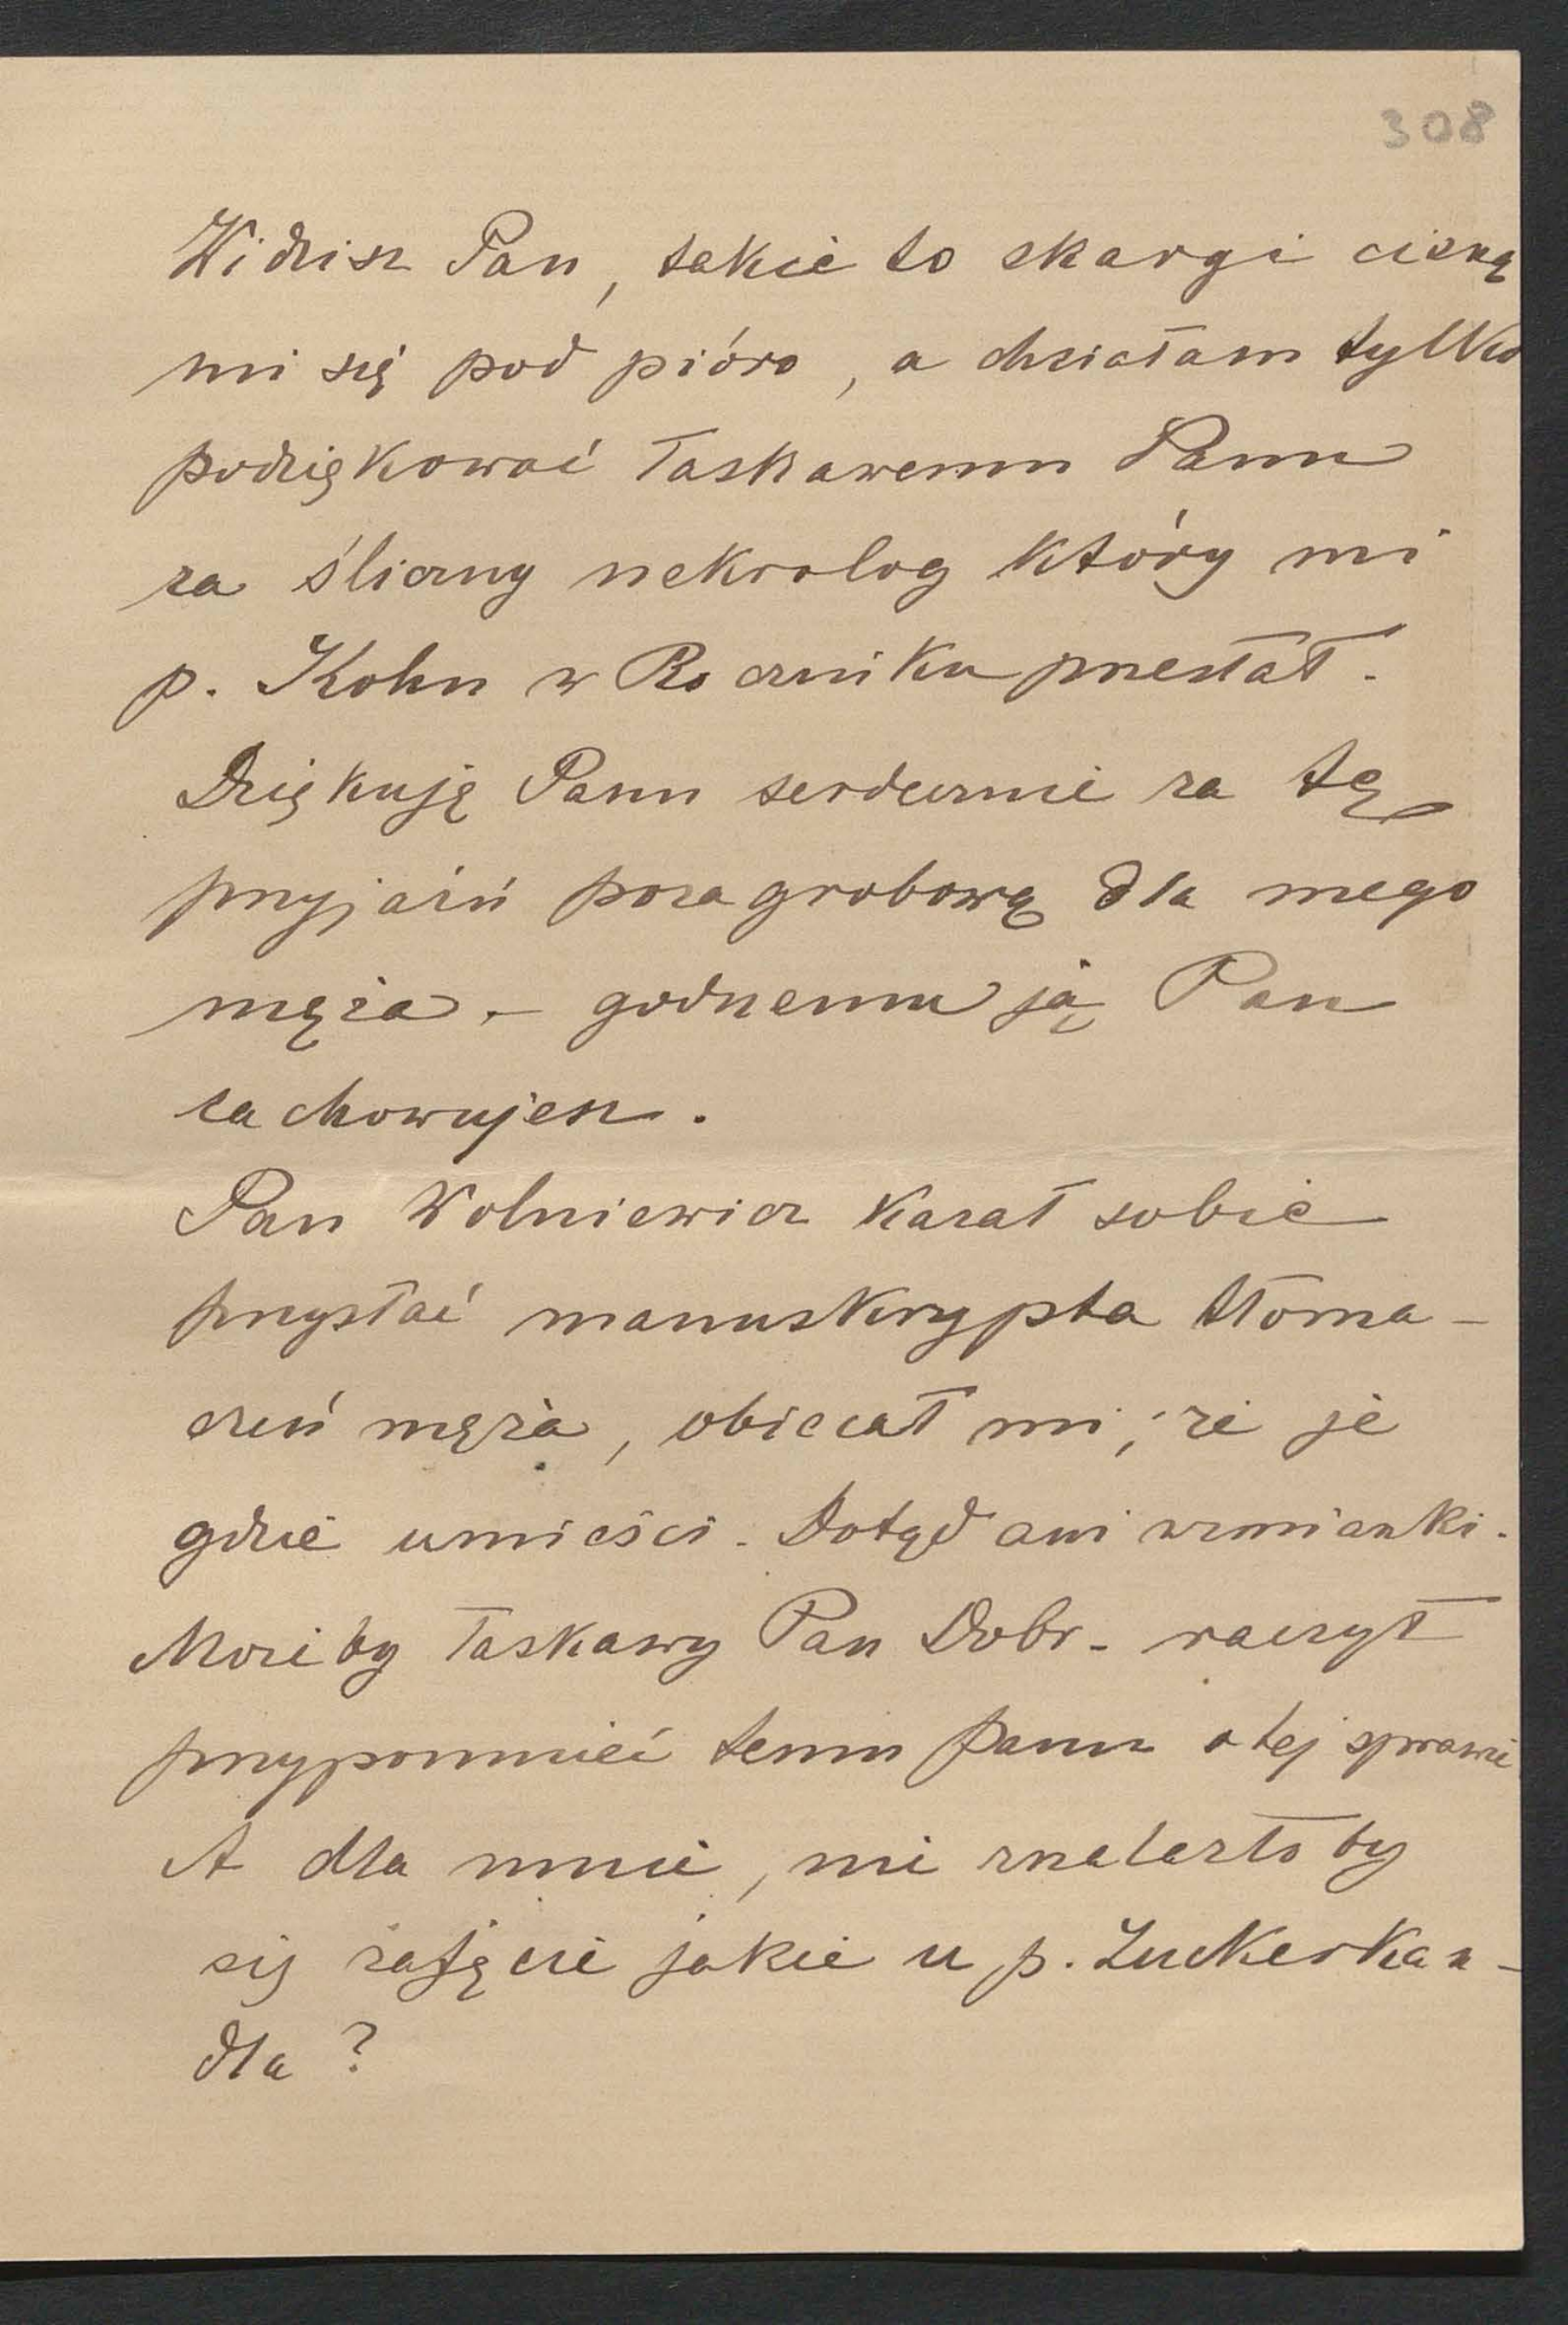 308
Widzisz Pan, takie to skargi cisną
mi się pod pióro, a chciałam tylko
podziękować łaskawemu Panu
za śliczny nekrolog który mi
p. Kohn w Roczniku przesłał.
Dziękuję Panu serdecznie za tę
przyjaźń pozagrobową dla mego
męża. – godnemu ją Pan
zachowujesz.
Pan Wolniewicz kazał sobie
przysłać manuskrypta tłoma-
czeń męża, obiecał mi, że je
gdzie umieści. Dotąd ani wzmianki.
Możeby łaskawy Pan Dobr. raczył
przypomnieć temu panu o tej sprawie
A dla mnie, nie znalazło by
się zajęcie jakie u p. Zuckerkan-
dla?